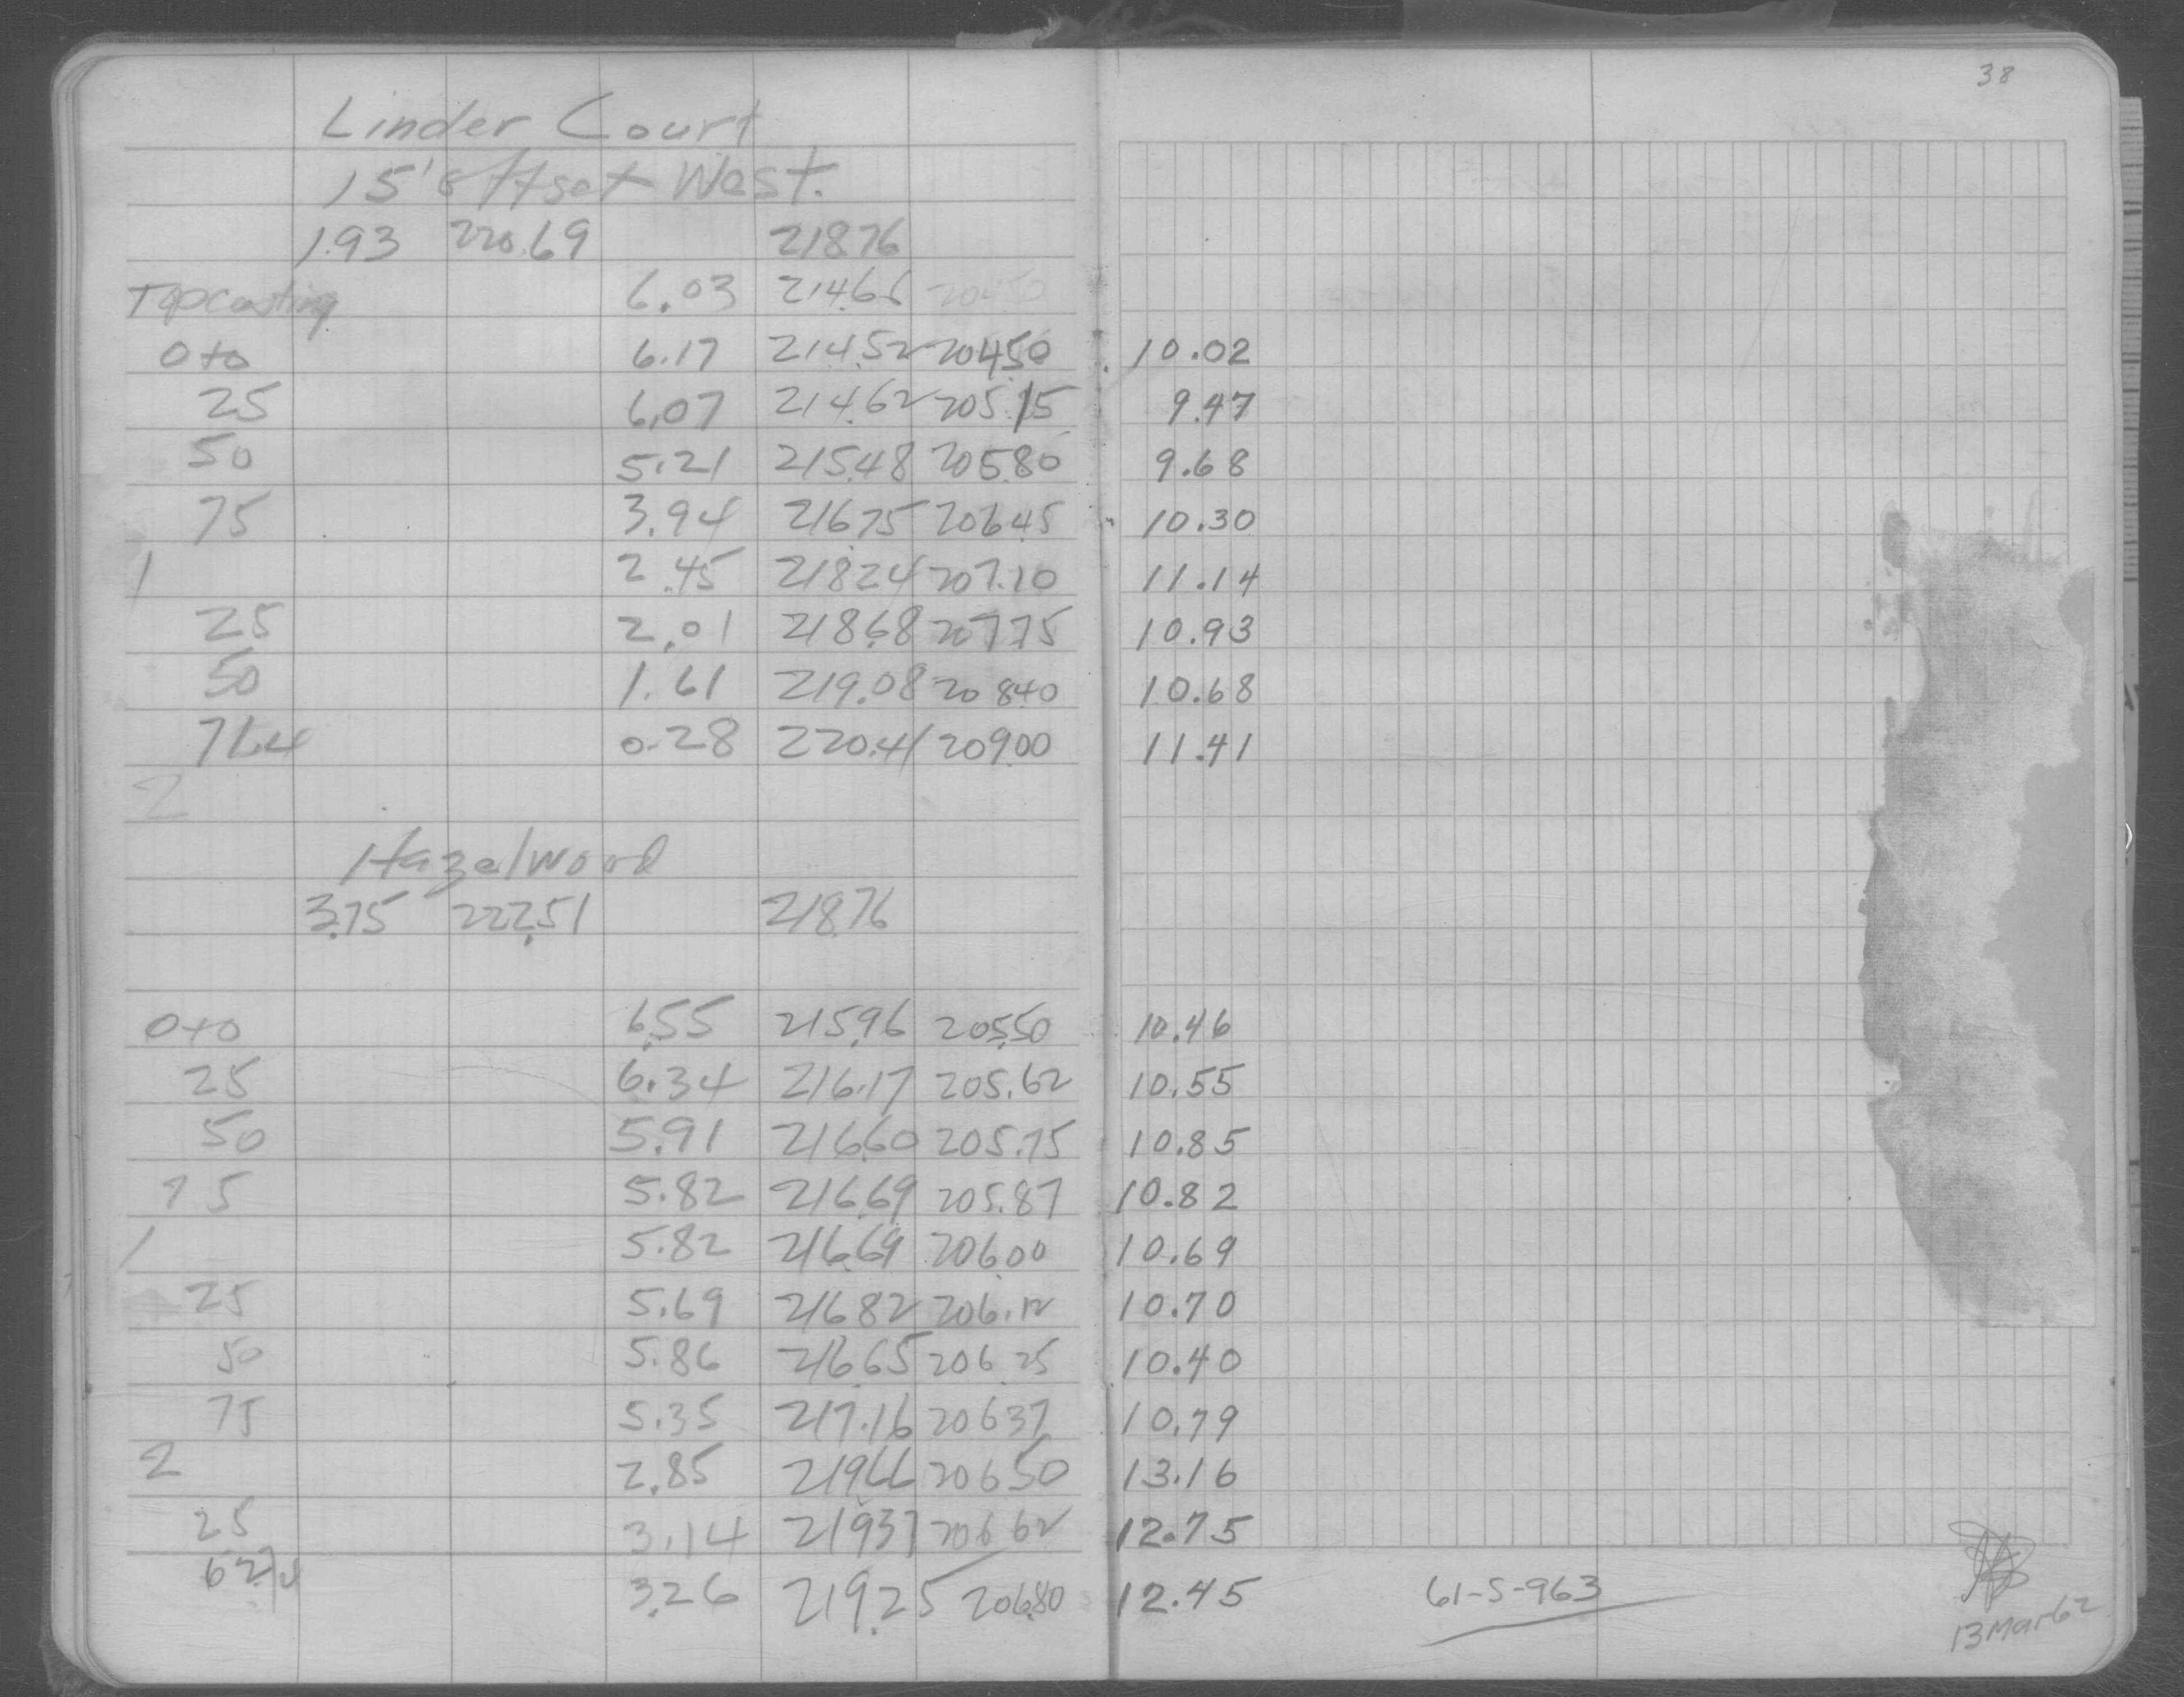 38
Linder Court
15' offset West.
1.93 220.69 218.76
Topcasting 6.03 214.66 204.50
0+0 6.17 214.52 204.50 10.02
25 6.07 214.62 205.15 9.47
50 5.21 215.48 205.80 9.68
75 3.94 216.75 206.45 10.30
1 2.45 218.24 207.10 11.14
25 2.01 218.68 207.75 10.93
50 1.61 219.08 208.40 10.68
71.4 0.28 220.41 209.00 11.41
2
Hazelwood
3.75 222.51 218.76
0+0 6.55 215.96 205.50 10.46
25 6.34 216.17 205.62 10.55
50 5.91 216.60 205.75 10.85
75 5.82 216.69 205.87 10.82
1 5.82 216.69 206.00 10.69
25 5.69 216.82 206.12 10.70
50 5.86 216.65 206.25 10.40
75 5.35 217.16 206.37 10.79
2 2.85 219.66 206.50 13.16
25 3.14 219.37 206.62 12.75
3.26 219.25 206.80 12.45 61-S-963
13 Mar 62